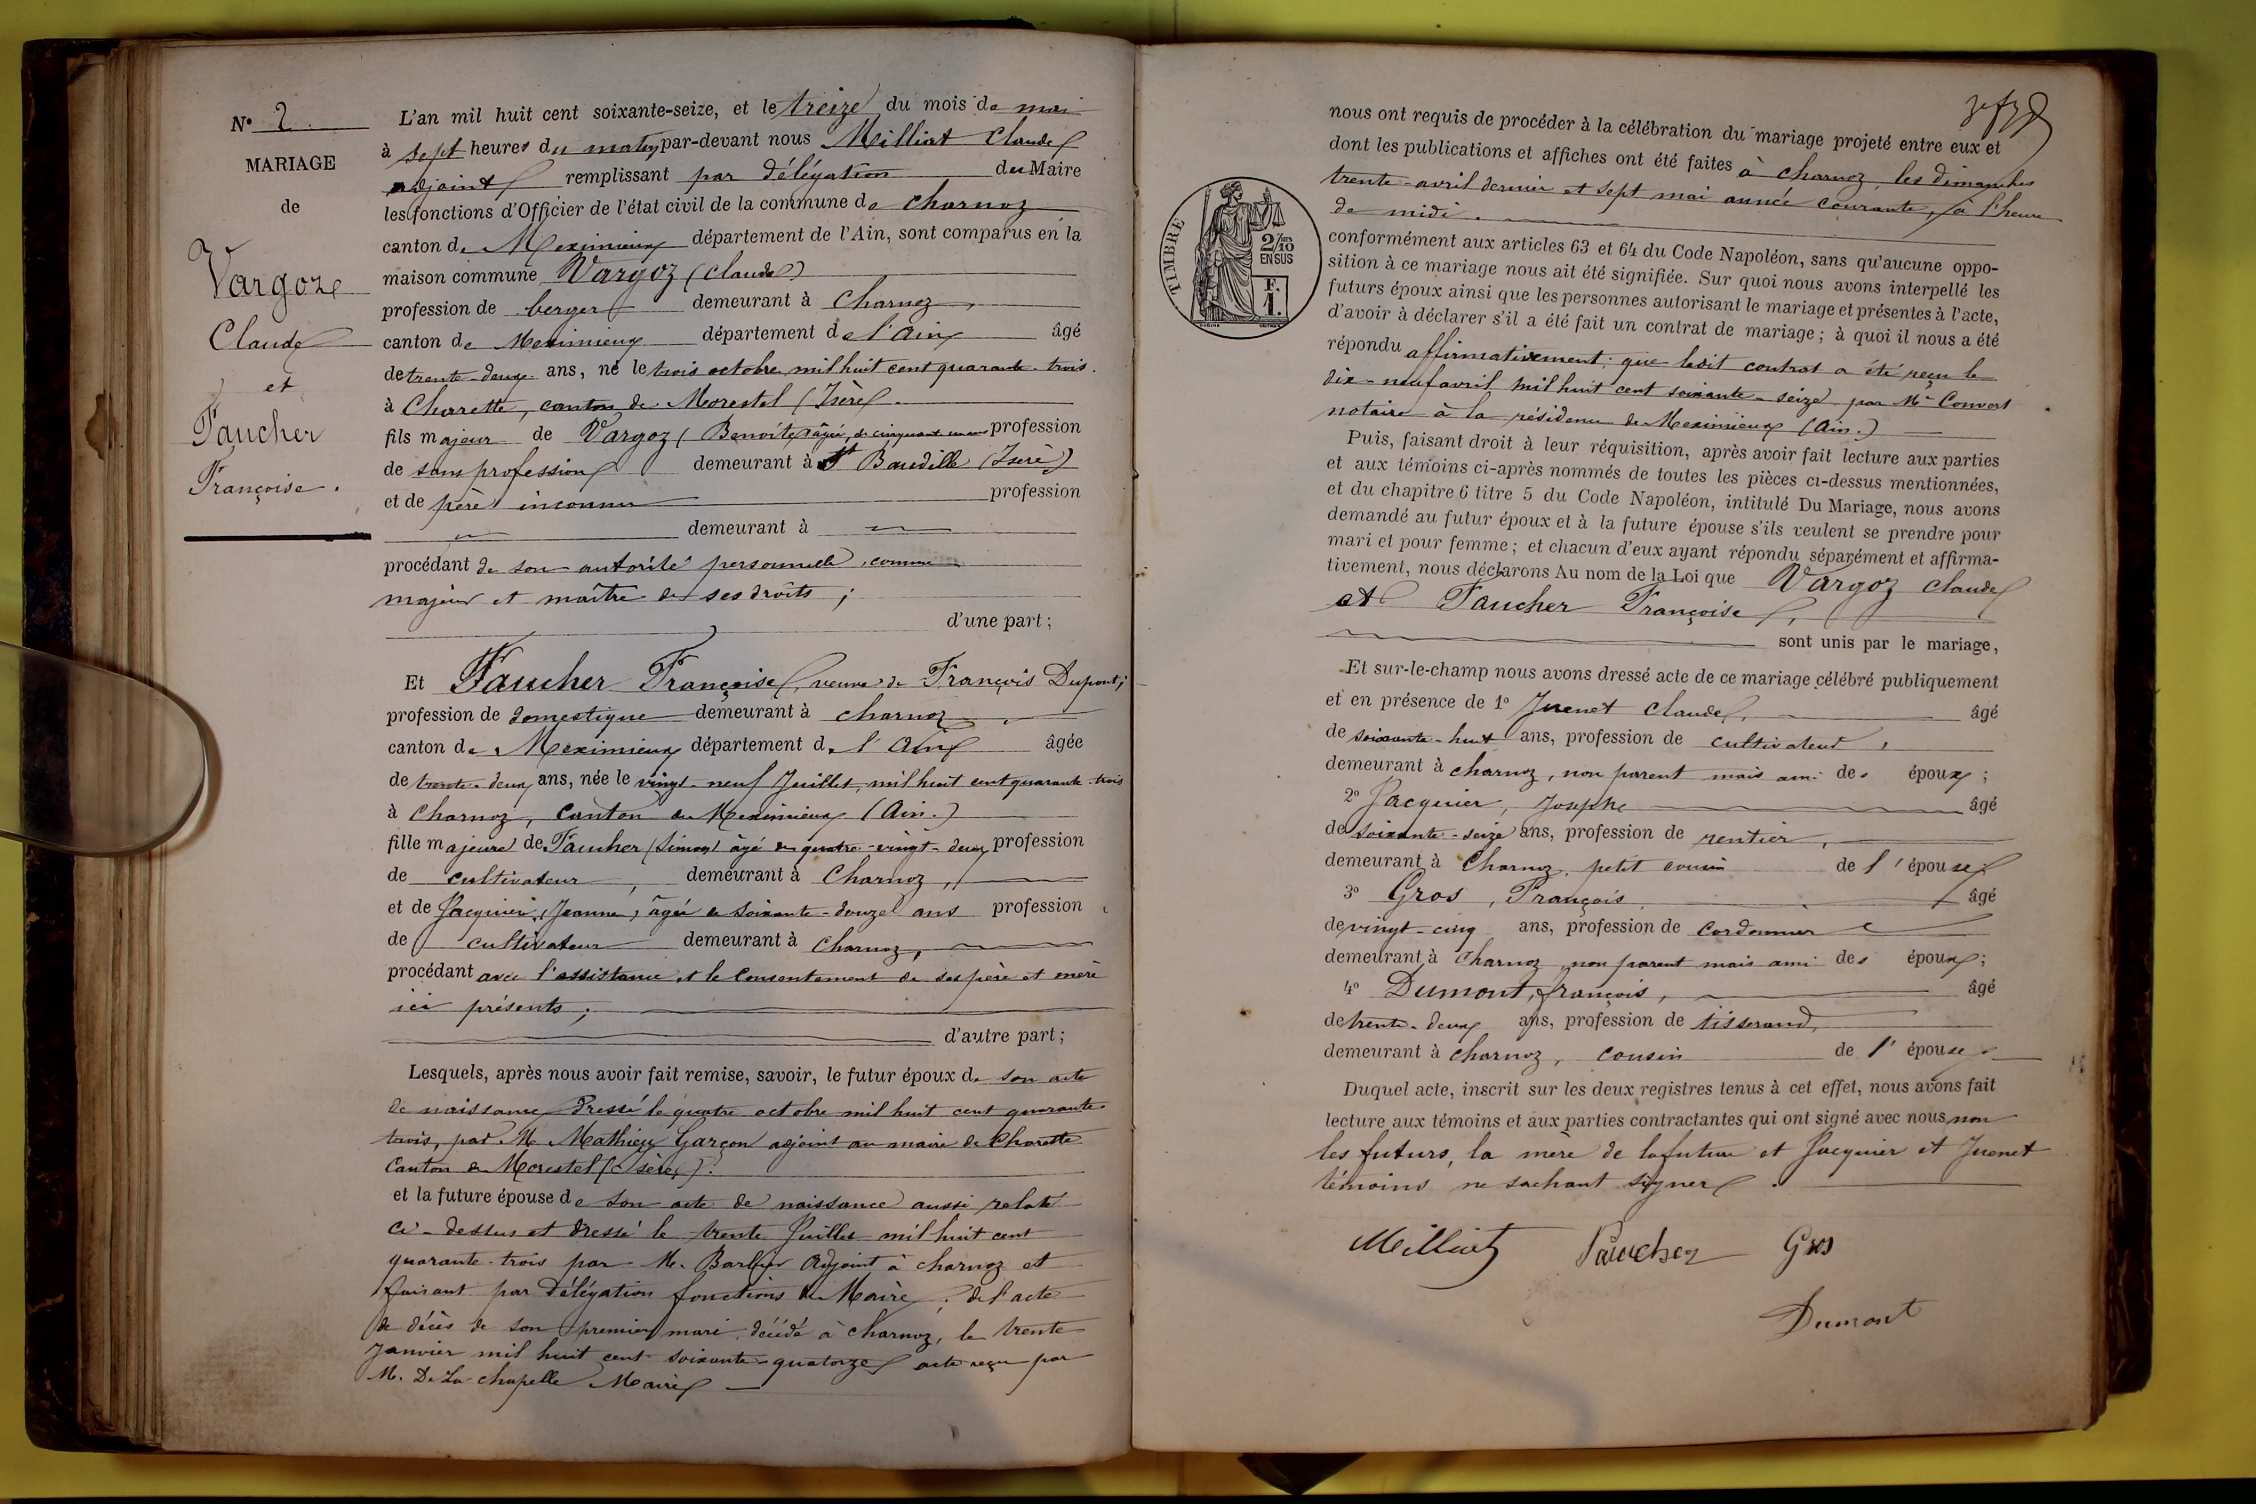 N° 2
MARIAGE
de
Vargoz
Claude
et
Faucher
Françoise.
L'an mil huit cent soixante-seize, et le treize du mois de mai
à sept heures du matin par-devant nous Milliat Claude
adjoint remplissant par délégation du Maire
les fonctions d'Officier de l'état civil de la commune de Charnoz
canton de Meximieux département de l'Ain, sont comparus en la
maison commune Vargoz (Claude)
profession de berger demeurant à Charnoz,
canton de Meximieux département de l'Ain âgé
de trente-deux ans, né le trois octobre mil huit cent quarante-trois.
à Charette, canton de Morestel (Isère).
fils majeur de Vargoz (Benoîte) âgée de cinquante profession
de sans profession demeurant à St Baudille (Isère)
et de père inconnu profession
demeurant à
procédant de son autorité personnelle, comme
majeur et maître de ses droits;
d'une part;
Et Faucher Françoise, veuve de François Dupont;
profession de domestique demeurant à Charnoz,
canton de Meximieux département de l'Ain âgée
de trente-deux ans, née le vingt-neuf Juillet mil huit cent quarante-trois
à Charnoz, Canton de Meximieux (Ain.)
fille majeure de Faucher (Simon) âgé de quatre-vingt-deux profession
de cultivateur, demeurant à Charnoz,
et de Jacquier, Jeanne, âgée de soixante-douze ans profession
de cultivateur demeurant à Charnoz,
procédant avec l'assistance et le Consentement de ses père et mère
ici présents;
d'autre part;
Lesquels, après nous avoir fait remise, savoir, le futur époux de son acte
de naissance dressé le quatre octobre mil huit cent quarante
trois, par M. Mathieu Garçon adjoint au maire de Charette
Canton de Morestel (Isère).
et la future épouse de son acte de naissance aussi relaté
ci-dessus et dressé le trente Juillet mil huit cent
quarante-trois par M. Barbier Adjoint à Charnoz et
faisant par délégation fonctions de Maire; de l'acte
de décès de son premier mari décédé à Charnoz, le trente
Janvier mil huit cent soixante-quatorze acte reçu par
M. De La Chapelle Maire
nous ont requis de procéder à la célébration du mariage projeté entre eux et
dont les publications et affiches ont été faites à Charnoz, les dimanches
trente-avril dernier et sept mai année courante, à l'heure
de midi.
TIMBRE
2/10
EN SUS
F.
1.
conformément aux articles 63 et 64 du Code Napoléon, sans qu'aucune oppo-
sition à ce mariage nous ait été signifiée. Sur quoi nous avons interpellé les
futurs époux ainsi que les personnes autorisant le mariage et présentes à l'acte,
d'avoir à déclarer s'il a été fait un contrat de mariage; à quoi il nous a été
répondu affirmativement; que ledit contrat a été reçu le
dix-neuf avril mil huit cent soixante-seize par Me Convert
notaire à la résidence de Meximieux (Ain.)
Puis, faisant droit à leur réquisition, après avoir fait lecture aux parties
et aux témoins ci-après nommés de toutes les pièces ci-dessus mentionnées,
et du chapitre 6 titre 5 du Code Napoléon, intitulé Du Mariage, nous avons
demandé au futur époux et à la future épouse s'ils veulent se prendre pour
mari et pour femme; et chacun d'eux ayant répondu séparément et affirma-
tivement, nous déclarons Au nom de la Loi que Vargoz Claude
et Faucher Françoise,
sont unis par le mariage,
Et sur-le-champ nous avons dressé acte de ce mariage célébré publiquement
et en présence de 1° Juenet Claude, âgé
de soixante-huit ans, profession de cultivateur,
demeurant à Charnoz, non parent mais ami des époux;
2° Jacquier, Josephe âgé
de soixante-seize ans, profession de rentier,
demeurant à Charnoz, petit cousin de l'épouse;
3° Gros, François, âgé
de vingt-cinq ans, profession de Cordonnier
demeurant à Charnoz non parent mais ami des époux;
4° Dumont, françois, âgé
de trente-deux ans, profession de tisserand,
demeurant à Charnoz, cousin de l'épouse.
Duquel acte, inscrit sur les deux registres tenus à cet effet, nous avons fait
lecture aux témoins et aux parties contractantes qui ont signé avec nous, non
les futurs, la mère de la future et Jacquier et Juenet
témoins ne sachant signer.
Milliat Faucher Gros
Dumont